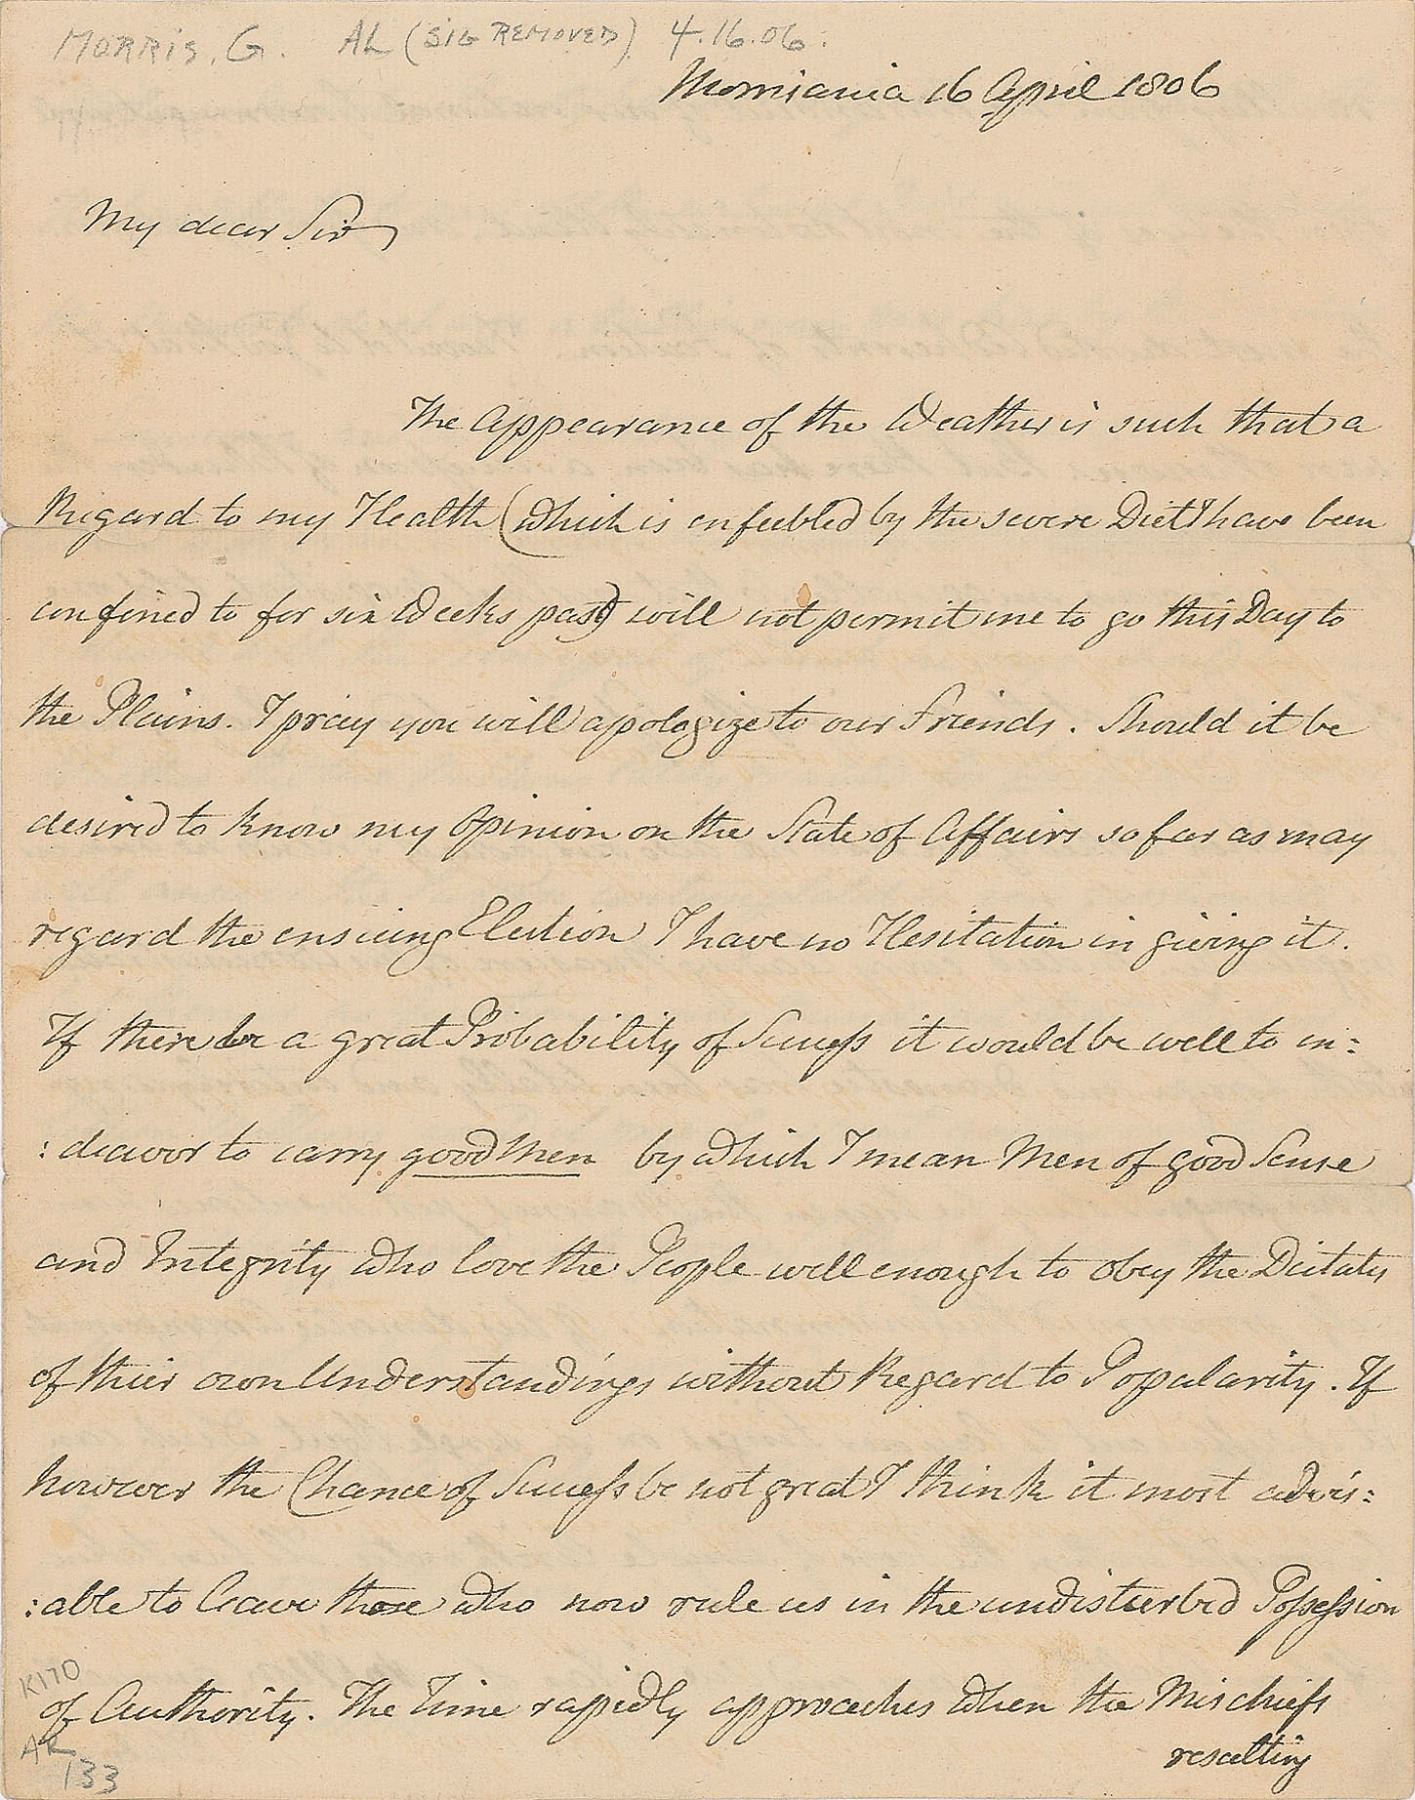 MORRIS, G. AL (SIG REMOVED) 4.16.06.
Morrisania 16 April 1806
My dear Sir
The Appearance of the Weather is such that a
Regard to my Health (which is enfeebled by the severe Diet I have been
confined to for six Weeks past) will not permit me to go this Day to
the Plains. I pray you will apologize to our Friends. Should it be
desired to know my Opinion on the State of Affairs so far as may
regard the ensuing Election I have no Hesitation in giving it.
If there be a great Probability of Success it would be well to in:
:deavor to carry good Men by which I mean Men of good Sense
and Integrity who love the People well enough to obey the Dictates
of their own Understandings without Regard to Popularity. If
however the Chance of Success be not great I think it most advis:
:able to leave those who now rule us in the undisturbed Possession
of Authority. The Time rapidly approaches when the Mischiefs
resulting
K170
AR
133